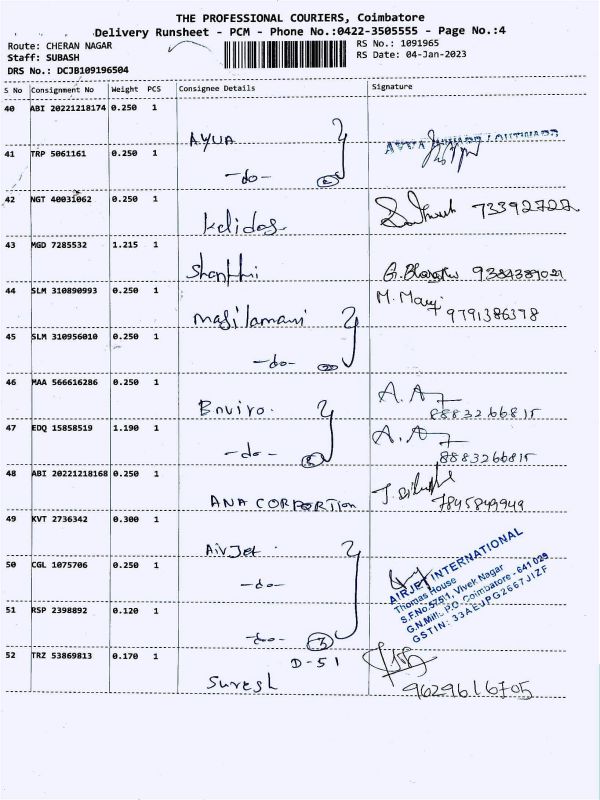 THE PROFESSIONAL COURIERS, Coimbatore
Delivery Runsheet - PCM - Phone No.:0422-3505555 - Page No.:4
Route: CHERAN NAGAR
Staff: SUBASH
DRS No.: DCJB109196504
RS No.: 1091965
RS Date: 04-Jan-2023
S No Consignment No Weight PCS Consignee Details Signature
40 ABI 20221218174 0.250 1
AYUA
41 TRP 5061161 0.250 1
-do- 2
42 NGT 40031062 0.250 1
Kalidas 73392722
43 MGD 7285532 1.215 1
Shanthi G. 9384389021
44 SLM 310890993 0.250 1
Masilamani M. 9791386378
45 SLM 310956010 0.250 1
-do- 2
46 MAA 566616286 0.250 1
Enviro. A.A 8883266815
47 EDQ 15858519 1.190 1
-do- 2 A.A 8883266815
48 ABI 20221218168 0.250 1
ANA CORPORTION 7845849949
49 KVT 2736342 0.300 1
AirJet.
50 CGL 1075706 0.250 1
-do-
AIRJET INTERNATIONAL
Thomas House
S.F.No:575/1, Vivek Nagar
G.N.Mills P.O. Coimbatore - 641 029
GSTIN: 33AEJPG2667J1ZF
51 RSP 2398892 0.120 1
-do- 3
52 TRZ 53869813 0.170 1
D-51
Suresh 9629616705